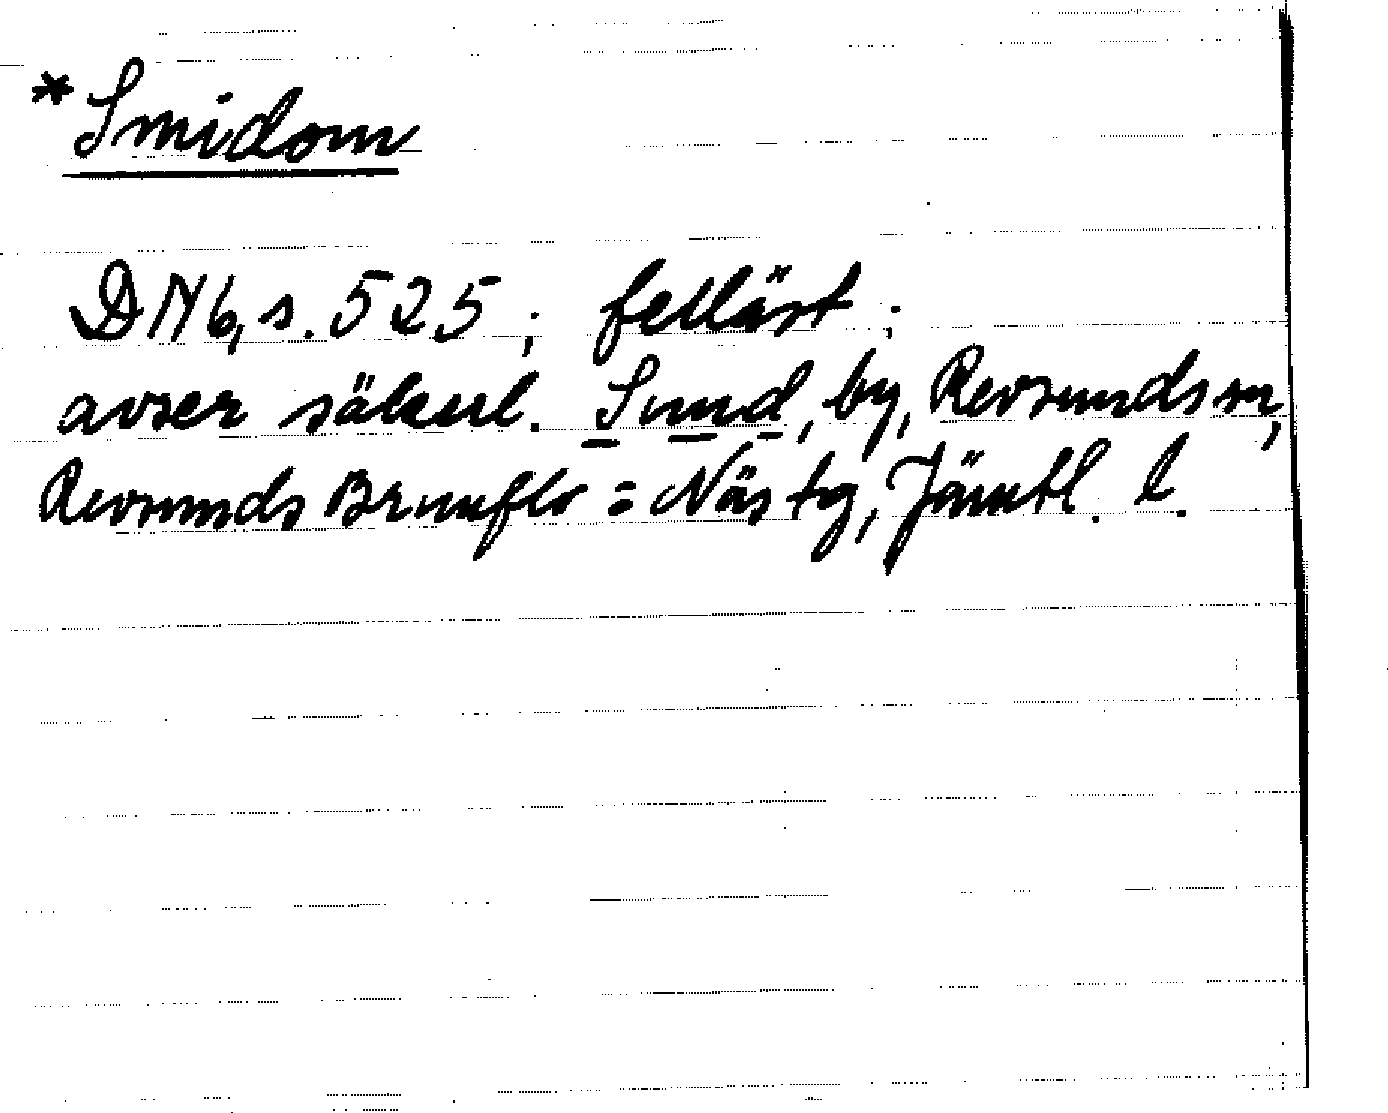 *Smidom
DN 6, s. 525; felläst;
avser säkerl. Sund, by, Revsunds sn,
Revsunds Brunflo = Näs tg, Jämtl. l.